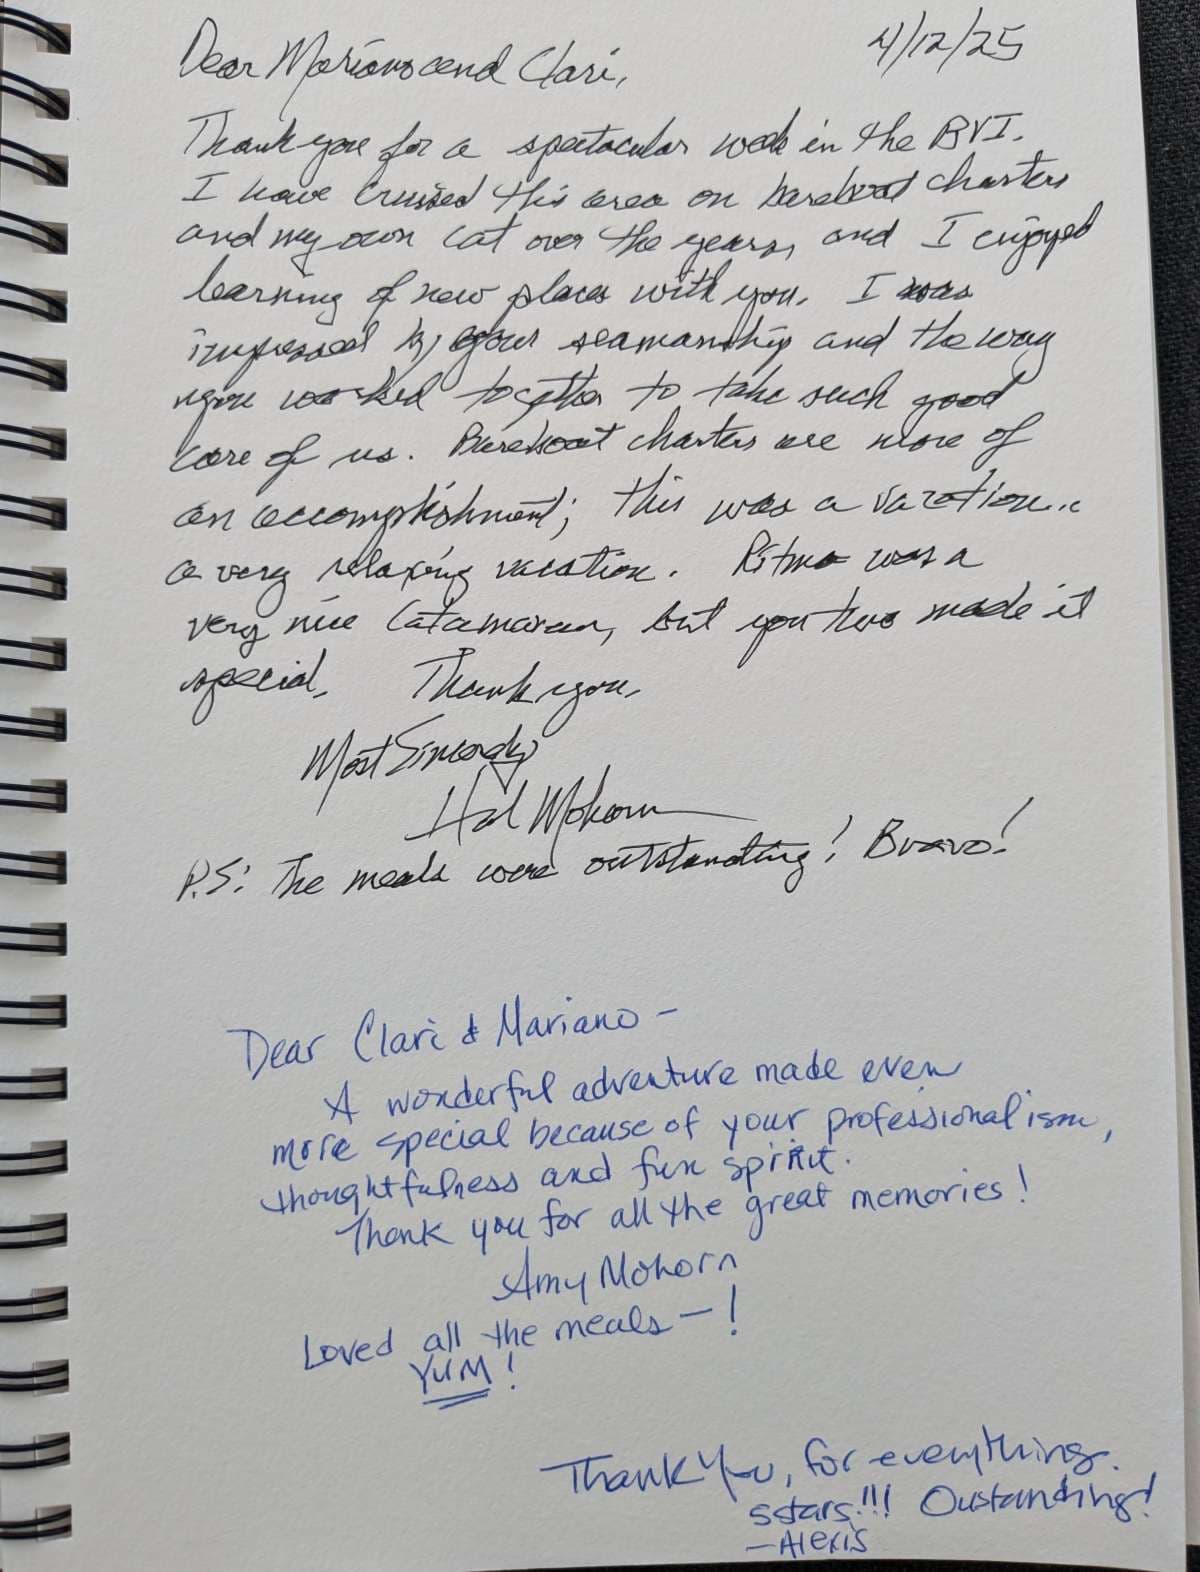 4/12/25
Dear Mariano and Clari,
Thank you for a spectacular week in the BVI.
I have cruised this area on bareboat charters
and my own cat over the years, and I enjoyed
learning of new places with you. I was
impressed by your seamanship and the way
you worked together to take such good
care of us. Bareboat charters are more of
an accomplishment; this was a vacation...
a very relaxing vacation. Ritmo was a
very nice catamaran, but you two made it
special. Thank you.
Most Sincerely,
Hal Mohorn
P.S: The meals were outstanding! Bravo!
Dear Clari & Mariano -
A wonderful adventure made even
more special because of your professionalism,
thoughtfulness and fun spirit.
Thank you for all the great memories!
Amy Mohorn
Loved all the meals - !
YUM!
Thank You, for everything.
5stars!!! Oustanding!
-Alexis